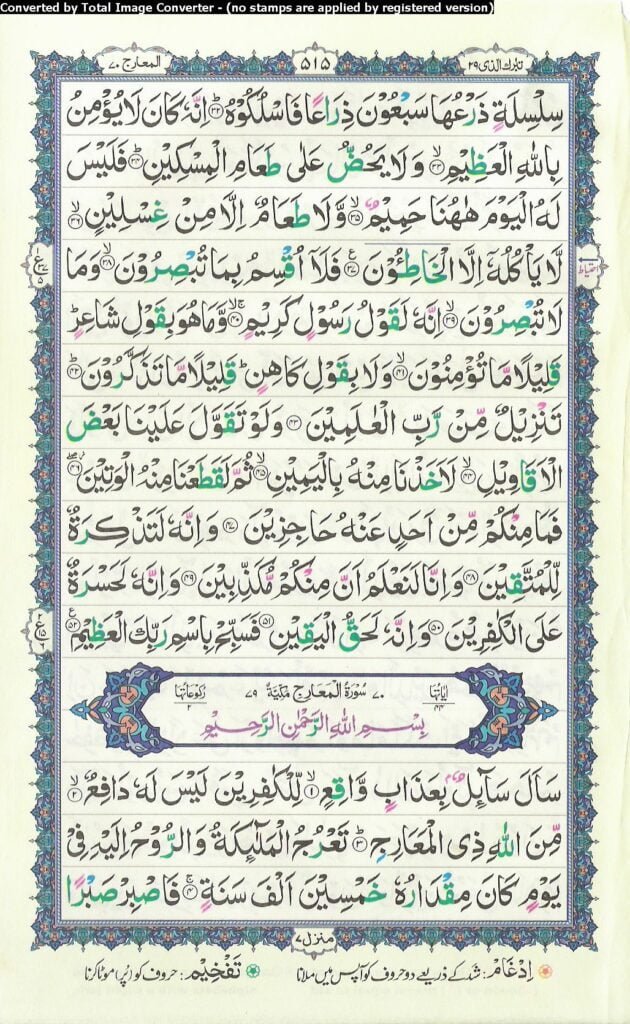 Converted by Total Image Converter - (no stamps are applied by registered version)
تبٰرك الذی ۲۹
۵۱۵
المعارج ۷۰
سِلْسِلَةٍ ذَرْعُهَا سَبْعُوْنَ ذِرَاعًا فَاسْلُكُوْهُ ؕ﴿۳۲﴾ اِنَّهٗ كَانَ لَا يُؤْمِنُ
بِاللّٰهِ الْعَظِيْمِ ۙ﴿۳۳﴾ وَلَا يَحُضُّ عَلٰى طَعَامِ الْمِسْكِيْنِ ؕ﴿۳۴﴾ فَلَيْسَ
لَهُ الْيَوْمَ هٰهُنَا حَمِيْمٌ ۙ﴿۳۵﴾ وَّلَا طَعَامٌ اِلَّا مِنْ غِسْلِيْنٍ ۙ﴿۳۶﴾
لَّا يَاْكُلُهٗۤ اِلَّا الْخَاطِـُٔوْنَ ﴿۳۷﴾ فَلَاۤ اُقْسِمُ بِمَا تُبْصِرُوْنَ ۙ﴿۳۸﴾ وَمَا
احتیاط
لَا تُبْصِرُوْنَ ۙ﴿۳۹﴾ اِنَّهٗ لَقَوْلُ رَسُوْلٍ كَرِيْمٍ ۚۙ﴿۴۰﴾ وَّمَا هُوَ بِقَوْلِ شَاعِرٍ ؕ
قَلِيْلًا مَّا تُؤْمِنُوْنَ ۙ﴿۴۱﴾ وَلَا بِقَوْلِ كَاهِنٍ ؕ قَلِيْلًا مَّا تَذَكَّرُوْنَ ؕ﴿۴۲﴾
تَنْزِيْلٌ مِّنْ رَّبِّ الْعٰلَمِيْنَ ﴿۴۳﴾ وَلَوْ تَقَوَّلَ عَلَيْنَا بَعْضَ
الْاَقَاوِيْلِ ۙ﴿۴۴﴾ لَاَخَذْنَا مِنْهُ بِالْيَمِيْنِ ۙ﴿۴۵﴾ ثُمَّ لَقَطَعْنَا مِنْهُ الْوَتِيْنَ ؗۖ﴿۴۶﴾
فَمَا مِنْكُمْ مِّنْ اَحَدٍ عَنْهُ حَاجِزِيْنَ ﴿۴۷﴾ وَاِنَّهٗ لَتَذْكِرَةٌ
لِّلْمُتَّقِيْنَ ﴿۴۸﴾ وَاِنَّا لَنَعْلَمُ اَنَّ مِنْكُمْ مُّكَذِّبِيْنَ ﴿۴۹﴾ وَاِنَّهٗ لَحَسْرَةٌ
عَلَى الْكٰفِرِيْنَ ﴿۵۰﴾ وَاِنَّهٗ لَحَقُّ الْيَقِيْنِ ﴿۵۱﴾ فَسَبِّحْ بِاسْمِ رَبِّكَ الْعَظِيْمِ ﴿۵۲﴾
اٰیَاتُهَا ۴۴
۷۰ سُوْرَةُ الْمَعَارِجِ مَكِّيَّةٌ ۷۹
رُكُوْعَاتُهَا ۲
بِسْمِ اللّٰهِ الرَّحْمٰنِ الرَّحِيْمِ
سَاَلَ سَآىِٕلٌۢ بِعَذَابٍ وَّاقِعٍ ۙ﴿۱﴾ لِّلْكٰفِرِيْنَ لَيْسَ لَهٗ دَافِعٌ ۙ﴿۲﴾
مِّنَ اللّٰهِ ذِى الْمَعَارِجِ ؕ﴿۳﴾ تَعْرُجُ الْمَلٰٓىِٕكَةُ وَالرُّوْحُ اِلَيْهِ فِىْ
يَوْمٍ كَانَ مِقْدَارُهٗ خَمْسِيْنَ اَلْفَ سَنَةٍ ۚ﴿۴﴾ فَاصْبِرْ صَبْرًا
منزل ۷
اِدْغَام: شد کے ذریعے دو حروف کو آپس میں ملانا
تَفْخِیْم: حروف کو پُر / موٹا کرنا